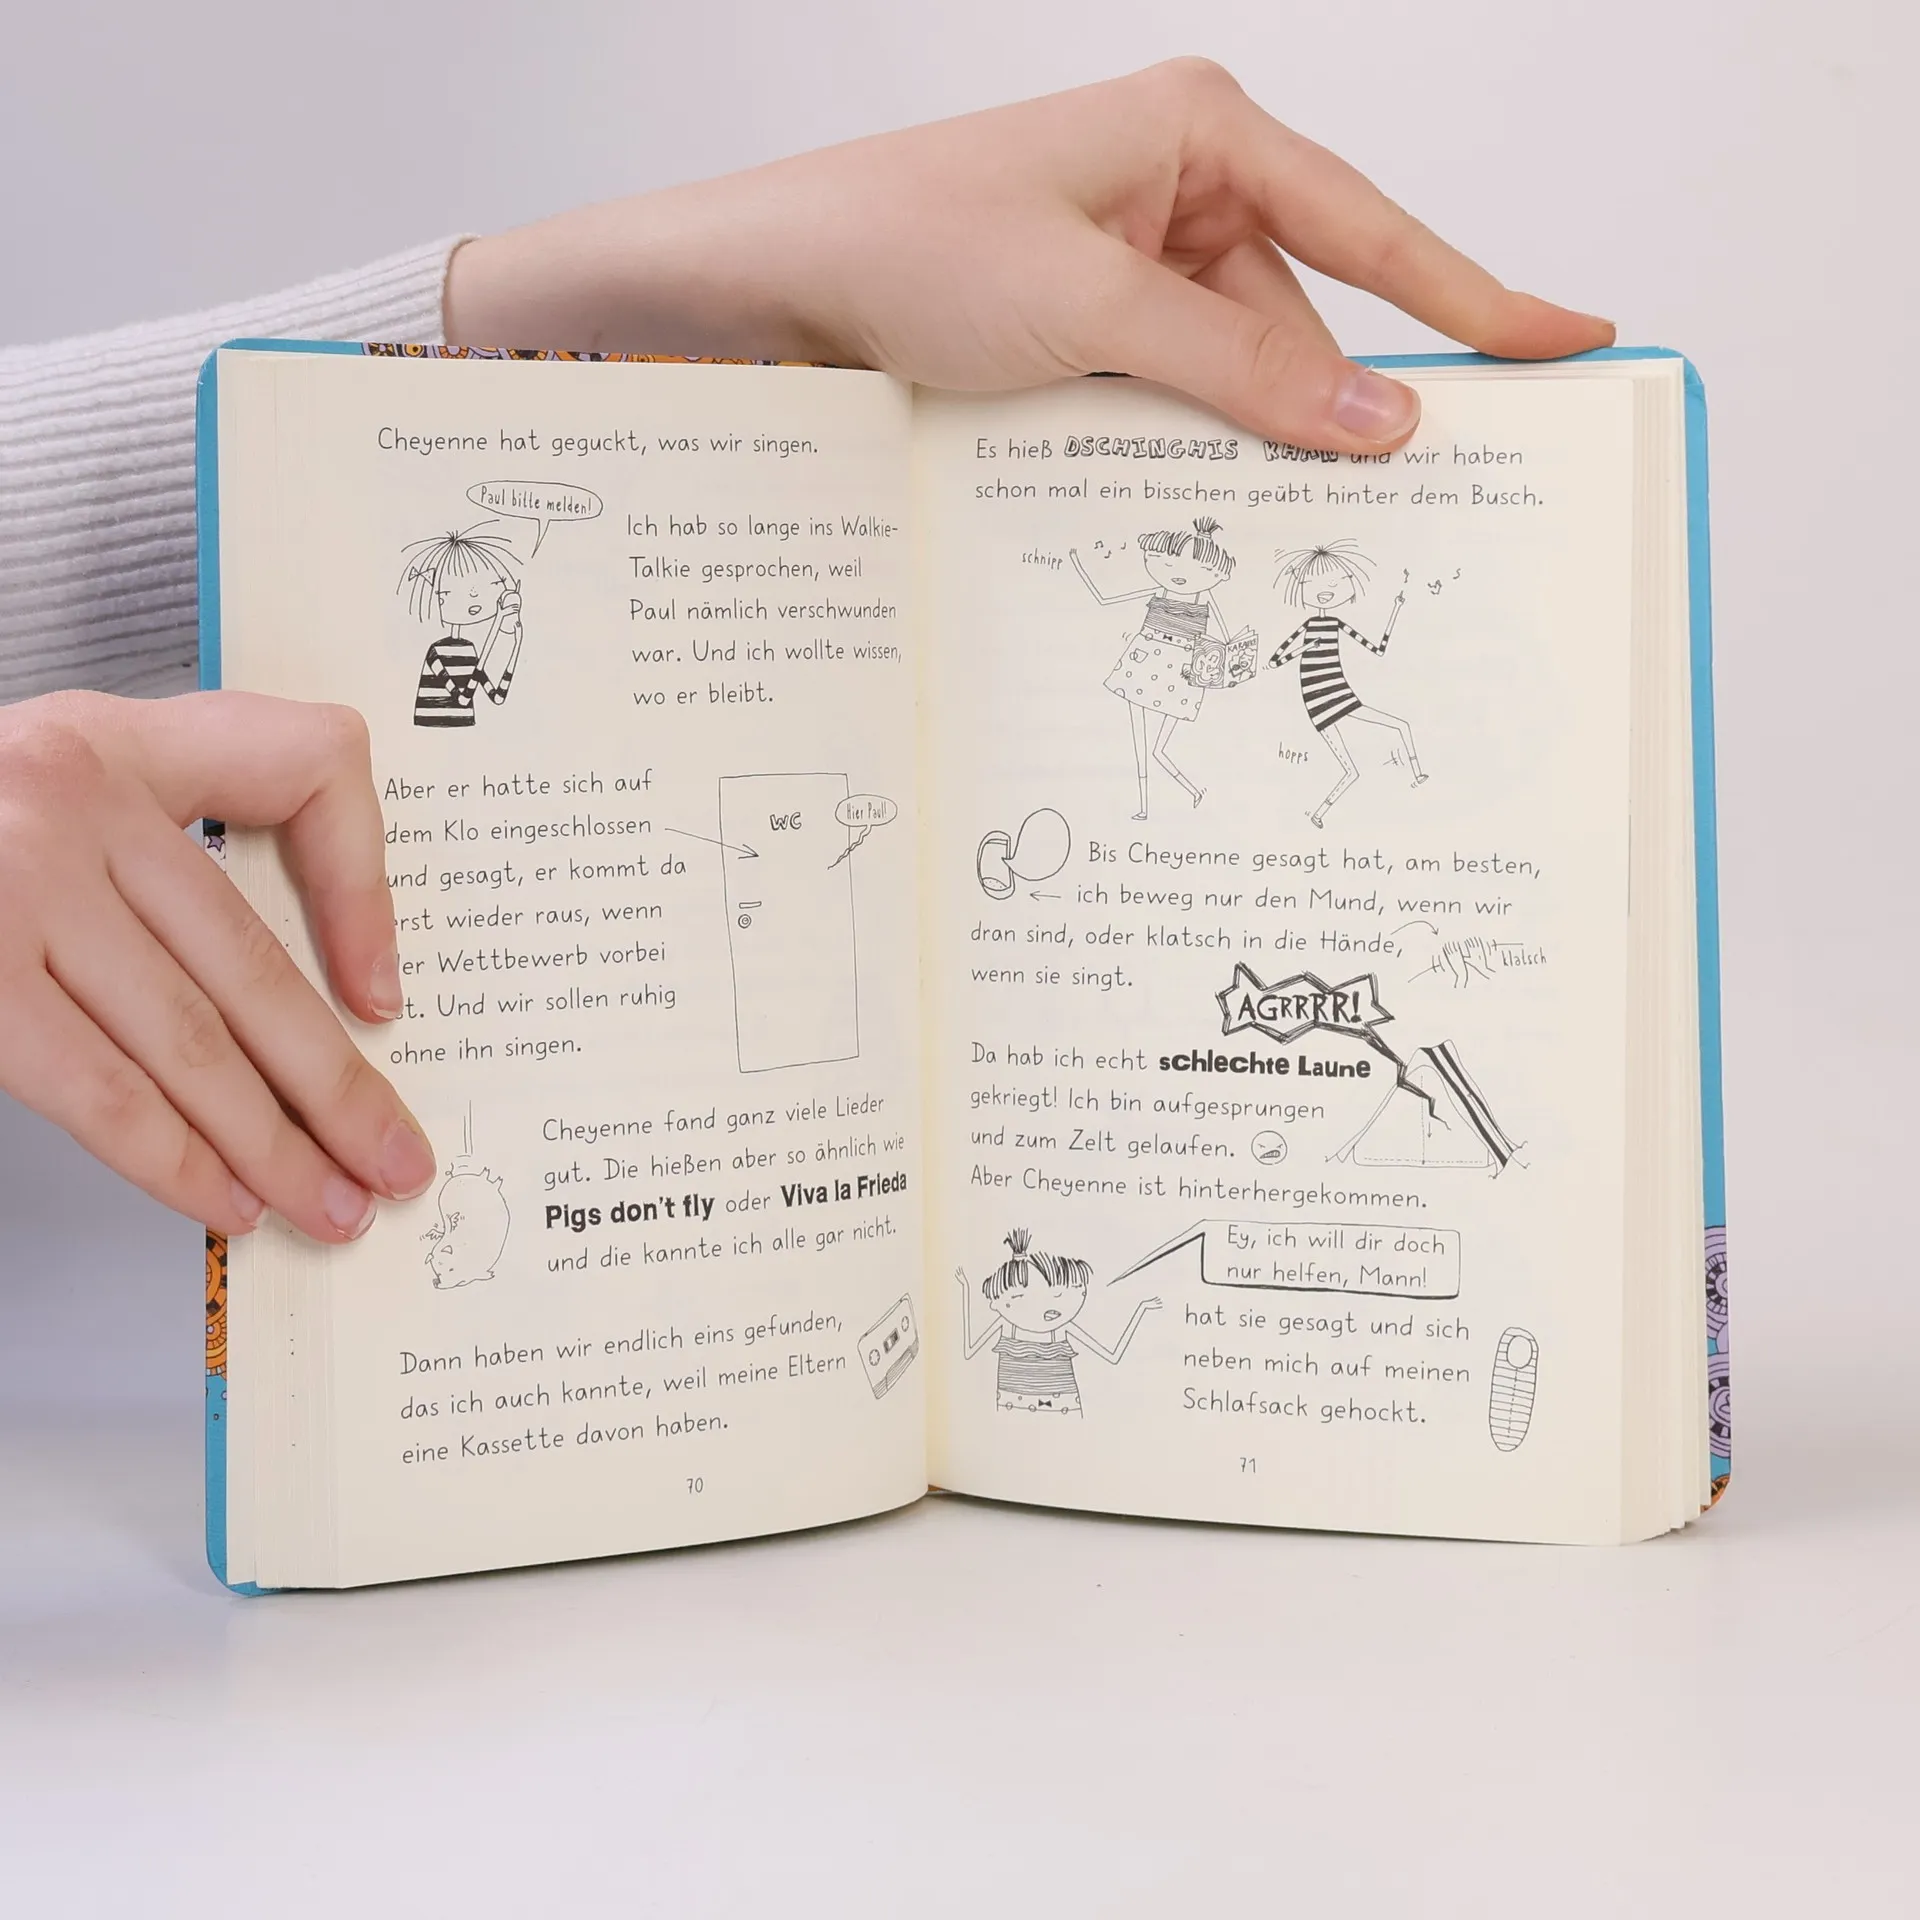 Cheyenne hat geguckt, was wir singen.
Paul bitte melden!
Ich hab so lange ins Walkie-
Talkie gesprochen, weil
Paul nämlich verschwunden
war. Und ich wollte wissen,
wo er bleibt.
Aber er hatte sich auf
dem Klo eingeschlossen
und gesagt, er kommt da
erst wieder raus, wenn
der Wettbewerb vorbei
ist. Und wir sollen ruhig
ohne ihn singen.
WC
Hier Paul!
Cheyenne fand ganz viele Lieder
gut. Die hießen aber so ähnlich wie
Pigs don't fly oder Viva la Frieda
und die kannte ich alle gar nicht.
Dann haben wir endlich eins gefunden,
das ich auch kannte, weil meine Eltern
eine Kassette davon haben.
70
Es hieß DSCHINGHIS KHAN und wir haben
schon mal ein bisschen geübt hinter dem Busch.
schnipp
hopps
Bis Cheyenne gesagt hat, am besten,
ich beweg nur den Mund, wenn wir
dran sind, oder klatsch in die Hände,
klatsch
wenn sie singt.
AGRRRR!
Da hab ich echt schlechte Laune
gekriegt! Ich bin aufgesprungen
und zum Zelt gelaufen.
Aber Cheyenne ist hinterhergekommen.
Ey, ich will dir doch
nur helfen, Mann!
hat sie gesagt und sich
neben mich auf meinen
Schlafsack gehockt.
71